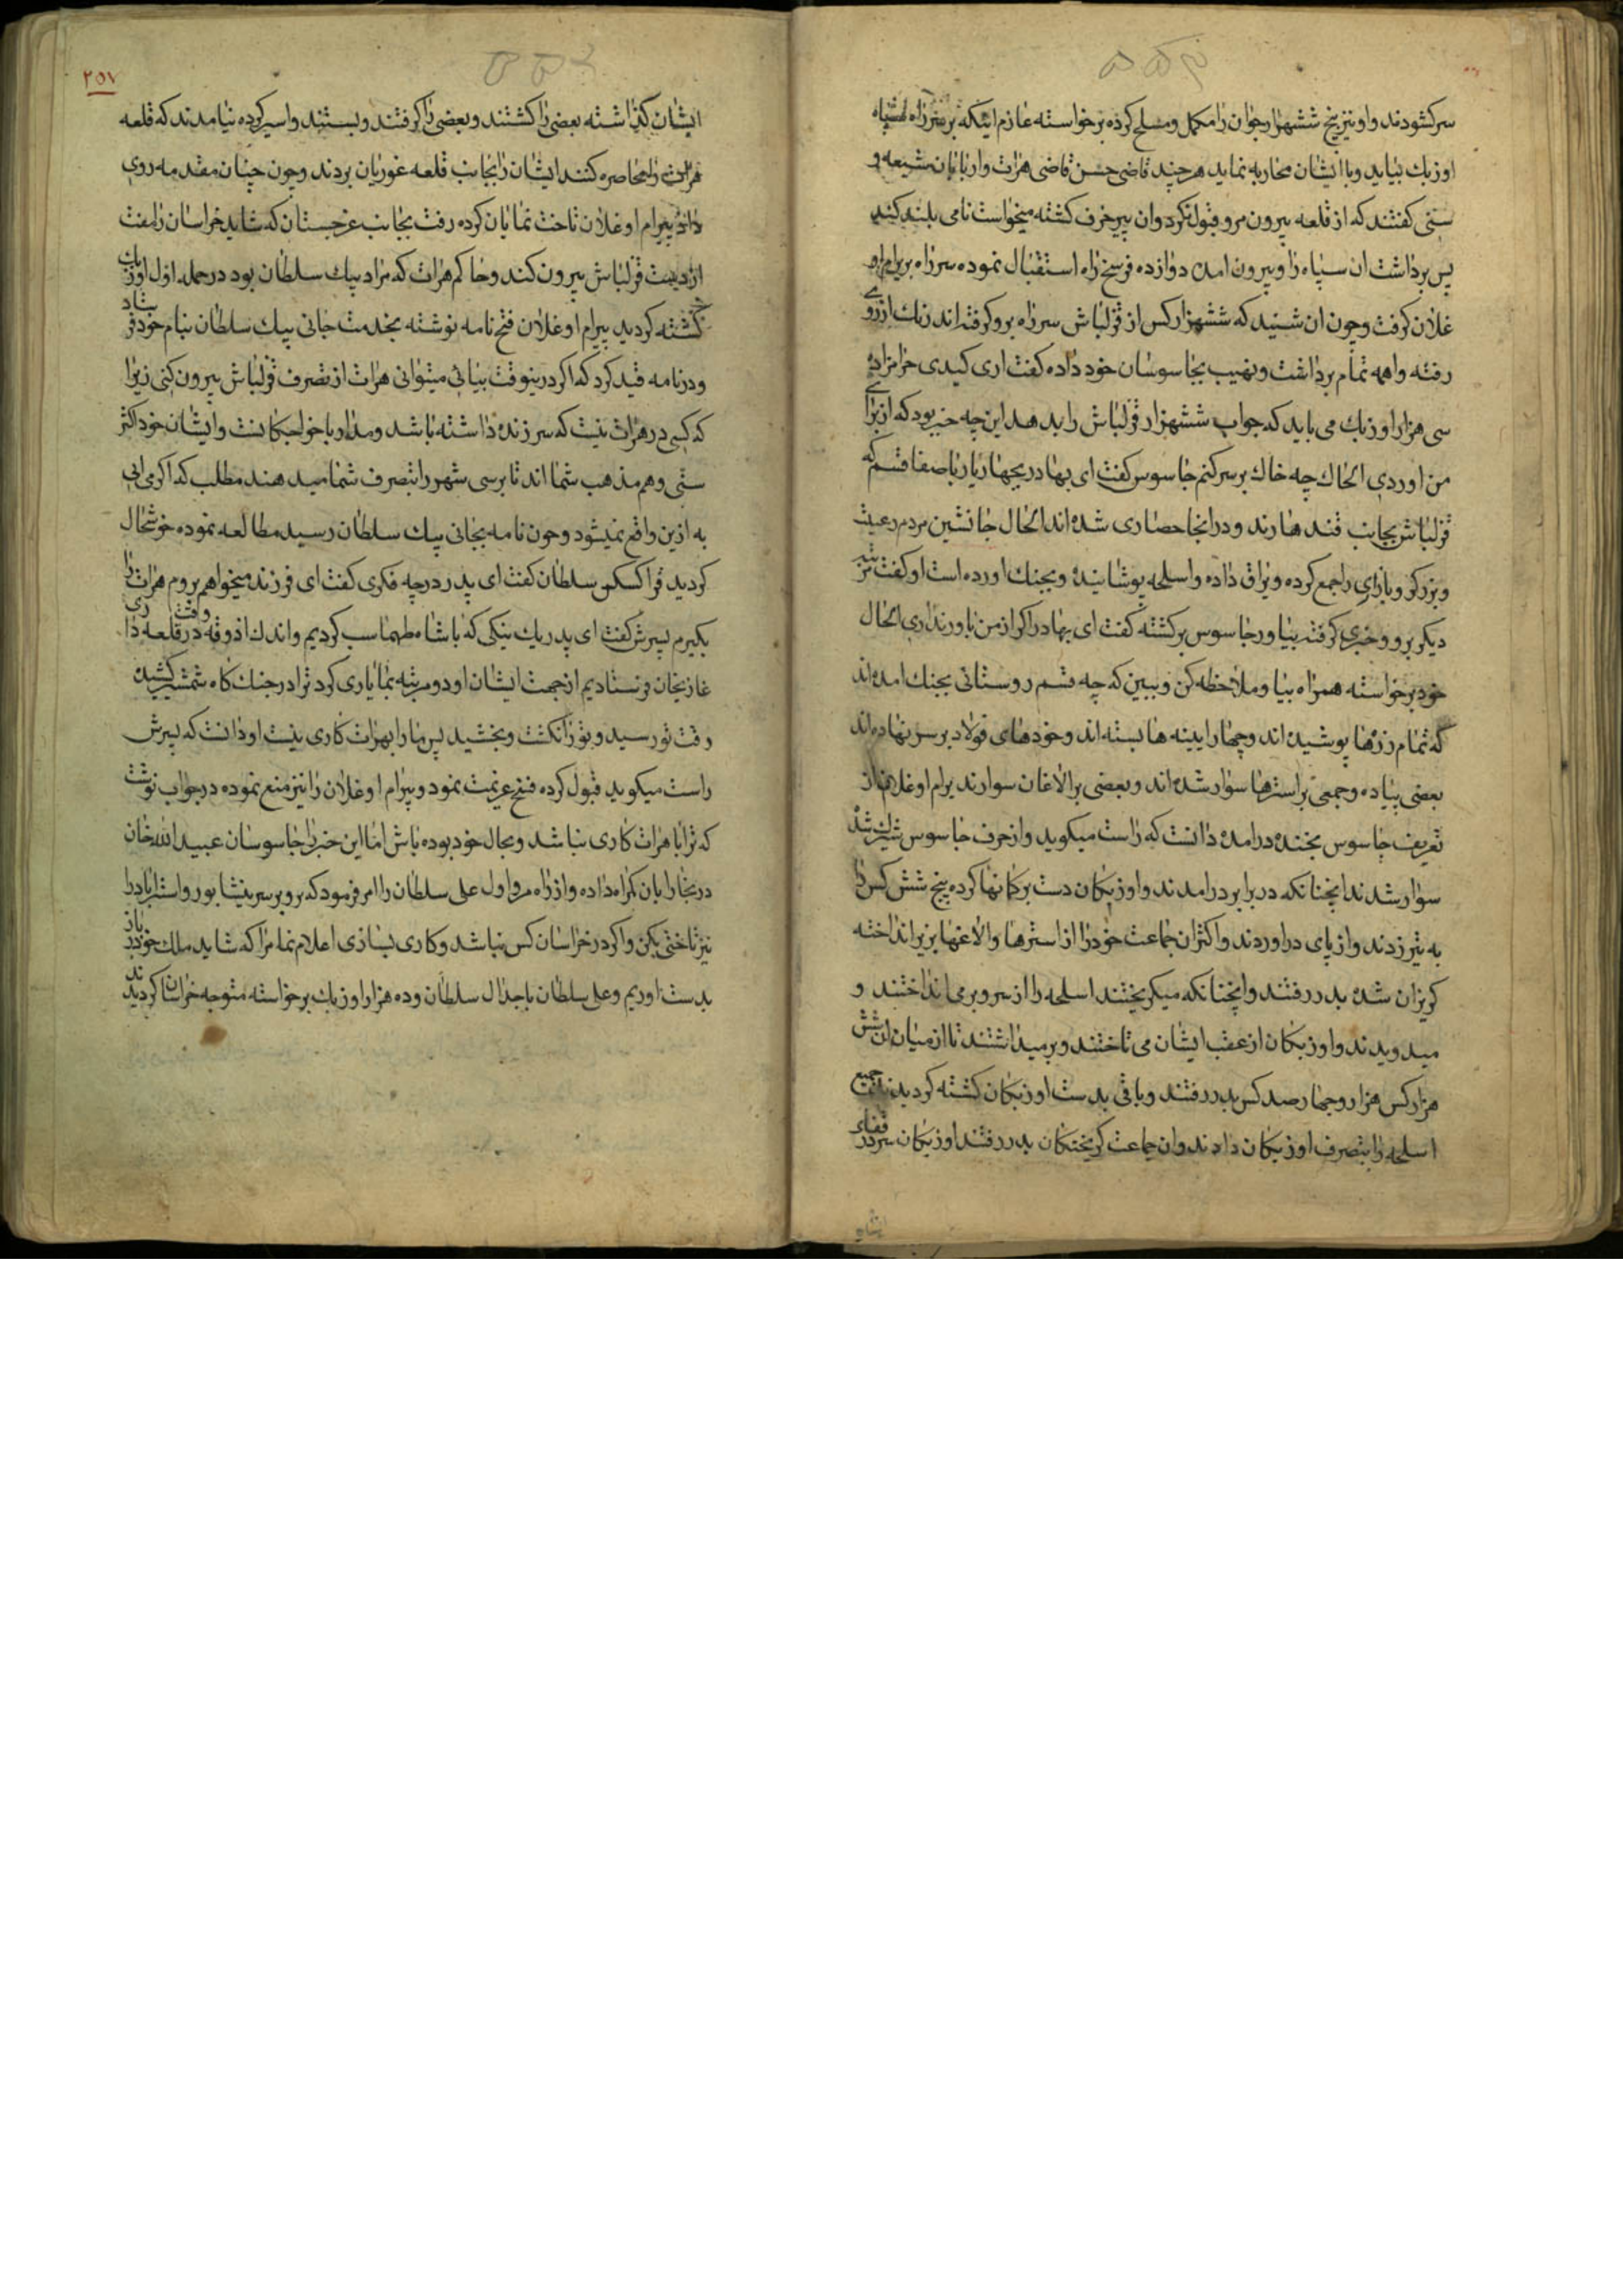 سر کشودند و او نیز پنج ششهزار جوان را مکمل و مسلح کرده برخواسته عازم اینکه بر سر راه سپاه
اوزبك بیاید و با ایشان محاربه نماید هرچند قاضی حسن قاضی هرات و اربابان شیعه و
سنی کفتند که از قلعه بیرون مرو قبول نکرد و ان پیر خرف کشته میخواست نامی بلند کند
پس برداشت ان سپاه را و بیرون امده دوازده فرسخ راه استقبال نموده سر راه بر بیرام او
غلان کرفت و چون ان شنید که ششهزار کس از قزلباش سر راه برو کرفته اند رنك از روی
رفته واهمه تمام برداشت و نهیب بجاسوسان خود داده کفت اری کیدی حرامزاده
سی هزار اوزبك می باید که جواب ششهزار قزلباش را بدهد این چه خبر بود که از برای
من اوردی الحال چه خاك بر سر کنم جاسوس کفت ای بهادر بچهار یار باصفا قسم که
قزلباش بجانب قندهارند و در انجا حصاری شده اند الحال جانشین مردم رعیت
و بزرکر و بازاری را جمع کرده و یراق داده و اسلحه پوشانیده و بجنك اورده است او کفت مرتبه
دیکر برو و خبری کرفته بیاور جاسوس برکشته کفت ای بهادر اکر از من باور نداری الحال
خود برخواسته همراه بیا و ملاحظه کن و ببین که چه قسم روستائی بجنك امده اند
که تمام زرها پوشیده اند و چهار ایینه ها بسته اند و خودهای فولاد بر سر نهاده اند
بعضی پیاده و جمعی بر استرها سوار شده اند و بعضی بر الاغان سوارند برام اوغلان از
تعریف جاسوس بخنده درامده دانست که راست میکوید و از حرف جاسوس شیرك شده
سوار شدند انچنانکه در برابر درامدند و اوزبکان دست بر کمانها کرده پنج شش کس را
به تیر زدند و از پای در اوردند و اکثر ان جماعت خود را از استرها و الاغها بزیر انداخته
کریزان شده بدر رفتند و انچنانکه میکریختند اسلحه را از سر و بر می انداختند و
میدویدند و اوزبکان از عقب ایشان می تاختند و بر میداشتند تا از میان ان شش
هزار کس هزار و چهار صد کس بدر رفتند و باقی بدست اوزبکان کشته کردیدند جمیع
اسلحه را بتصرف اوزبکان دادند و ان جماعت کریختکان بدر رفتند اوزبکان سر در قفای
ایشان کذاشته بعضی را کشتند و بعضی را کرفتند و بستند و اسیر کرده نیامدند که قلعه
هرات را محاصره کنند ایشان را بجانب قلعه غوریان بردند و چون چنان مقدمه روی
داد بیرام اوغلان تاخت نمایان کرده رفت بجانب غرجستان که شاید خراسان را مفت
از دست قزلباش بیرون کند و حاکم هرات که مراد بیك سلطان بود در حمله اول اوزبك
کشته کردید بیرام اوغلان فتح نامه نوشته بخدمت جانی بیك سلطان بنام خود فرستاد
و در نامه قید کرد که اکر درینوقت بیائی میتوانی هرات از تصرف قزلباش بیرون کنی زیرا
که کسی در هرات نیست که سر زنده داشته باشد و مدار با خواجکانست و ایشان خود اکثر
سنی و هم مذهب شما اند تا برسی شهر را بتصرف شما میدهند مطلب که اکر می ائی
به ازین واقع نمیشود و چون نامه بجانی بیك سلطان رسید مطالعه نموده خوشحال
کردید قرا کسکن سلطان کفت ای پدر در چه فکری کفت ای فرزند میخواهم بروم هرات را
بکیرم پسرش کفت ای پدر یك نیکی که با شاه طهماسب کردیم و اندك اذوقه در قلعه داری وقت
غازیخان فرستادیم از جهت ایشان او دو مرتبه بما یاری کرد ترا در جنك کاه شمشیر کشیده
وقت تو رسید و تو را نکشت و بخشید پس ما را بهرات کاری نیست او دانست که پسرش
راست میکوید قبول کرده فسخ عزیمت نمود و بیرام اوغلان را نیز منع نموده در جواب نوشت
که ترا با هرات کاری نباشد و بحال خود بوده باش اما این خبر را جاسوسان عبید الله خان
در بخارا بان کمراه داده و از راه مرو اول علی سلطان را امر فرمود که برو بر سر نیشابور و استراباد را
نیز تاختی بکن و اکر در خراسان کس نباشد و کاری بسازی اعلام نما مرا که شاید ملك خود را باز
بدست اوریم و علی سلطان باجدال سلطان و ده هزار اوزبك برخواسته متوجه خراسان کردیدند